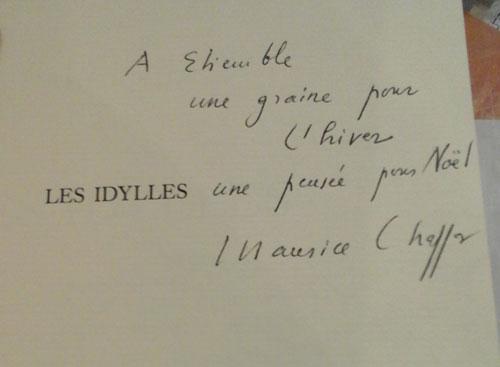 A Etiemble
une graine pour
l'hiver
LES IDYLLES une pensée pour Noël
Maurice Chappaz